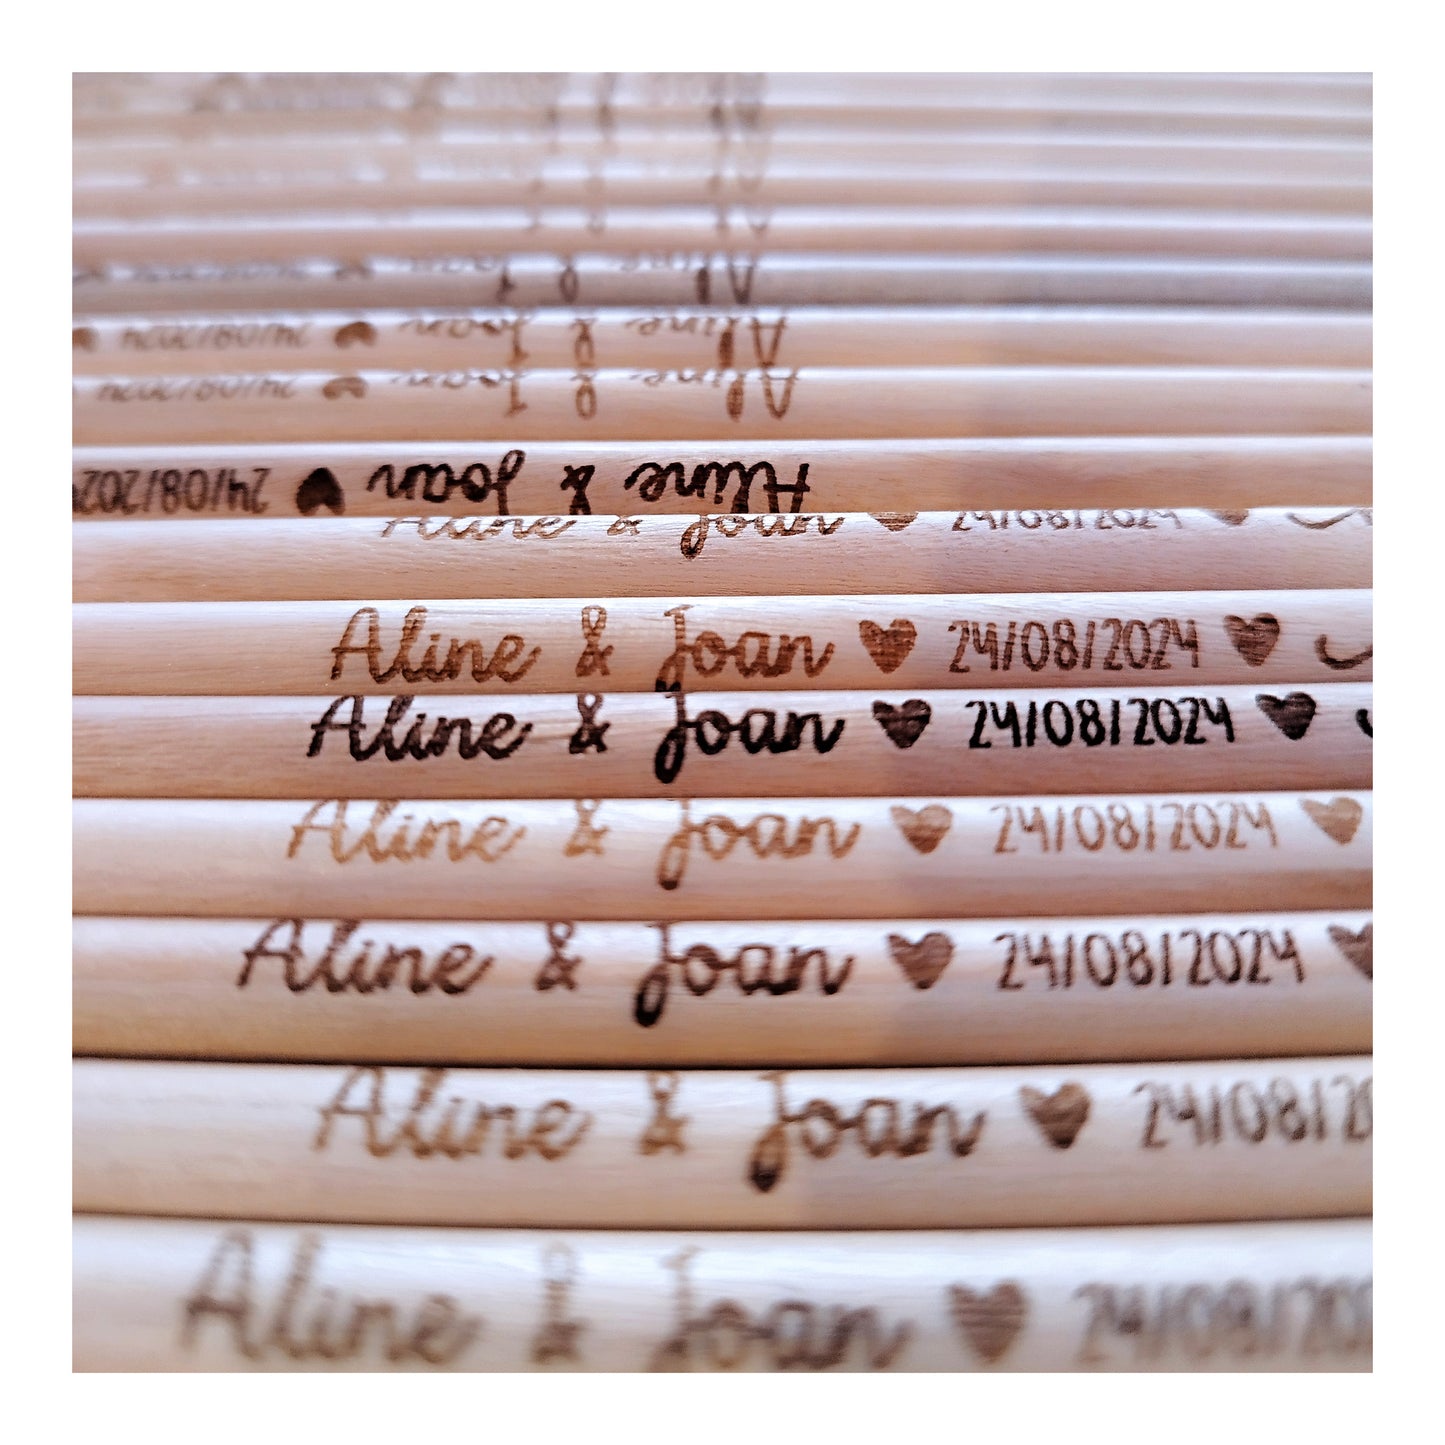 Aline & Joan
Aline & Joan ♥ 24/08/2024 ♥
Aline & Joan ♥ 24/08/2024 ♥
Aline & Joan ♥ 24/08/2024 ♥
Aline & Joan ♥ 24/08/2024
Aline & Joan ♥ 24/08/2024 ♥
Aline & Joan ♥ 24/08/2024 ♥
Aline & Joan ♥ 24/08/2024 ♥
Aline & Joan ♥ 24/08/2024 ♥
Aline & Joan ♥ 24/08/2024 ♥
Aline & Joan ♥ 24/08/20
Aline & Joan ♥ 24/08/202